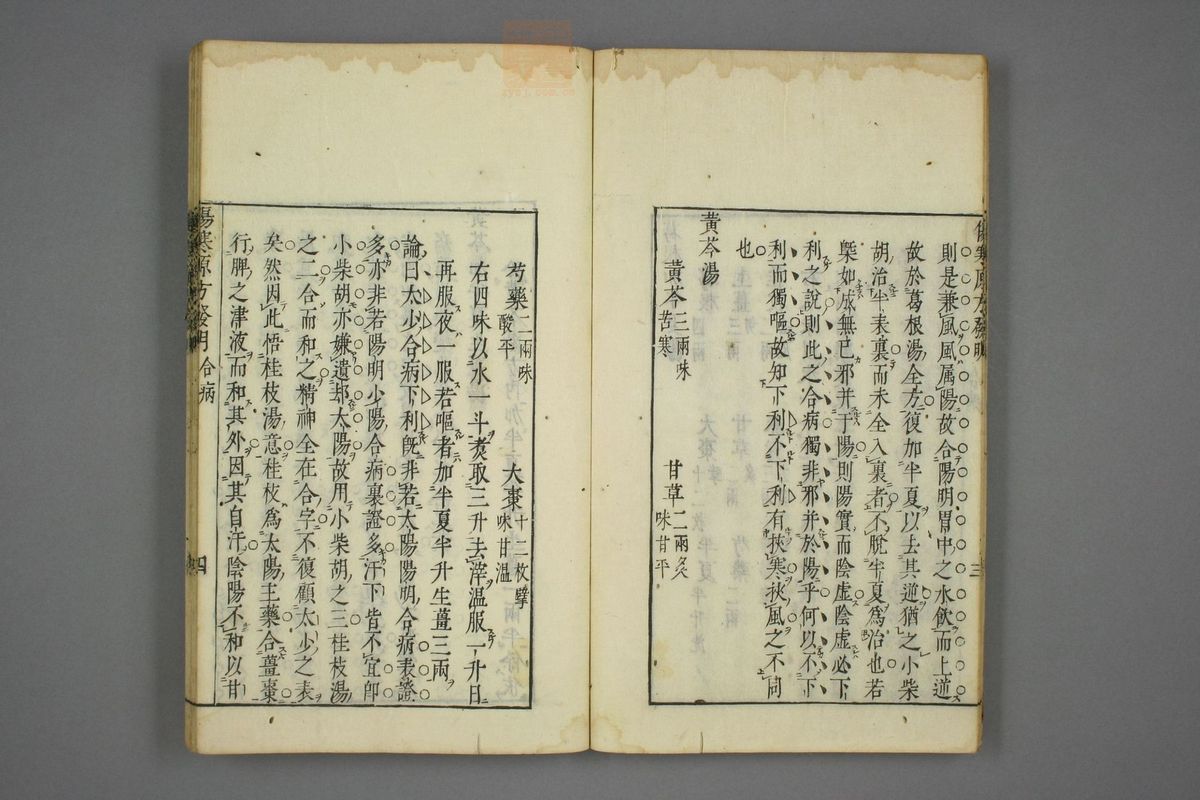 則是兼風風属陽故合陽明胃中之水飲而上逆
故於葛根湯全方復加半夏以去其逆猶之小柴
胡治半表裏而未全入裏者不脫半夏為治也若
槩如成無已邪并于陽則陽實而陰虛陰虛必下
利之說則此之合病獨非邪并於陽乎何以不下
利而獨嘔故知下利不下利有挾寒挾風之不同
也
黃芩湯
黃芩三兩味苦寒 甘草二兩炙味甘平
三
芍藥二兩味酸平 大棗十二枚擘味甘溫
右四味以水一斗煑取三升去滓溫服一升日
再服夜一服若嘔者加半夏半升生薑三兩
論曰太少合病下利旣非若太陽陽明合病表證
多亦非若陽明少陽合病裏證多汗下皆不宜即
小柴胡亦嫌遺却太陽故用小柴胡之三桂枝湯
之二合而和之精神全在合字不復顧太少之表
矣然因此悟桂枝湯意桂枝為太陽主藥合薑棗
行脾之津液而和其外因其自汗陰陽不和以甘
傷寒原方發明 合病
四
zysj.com.cn